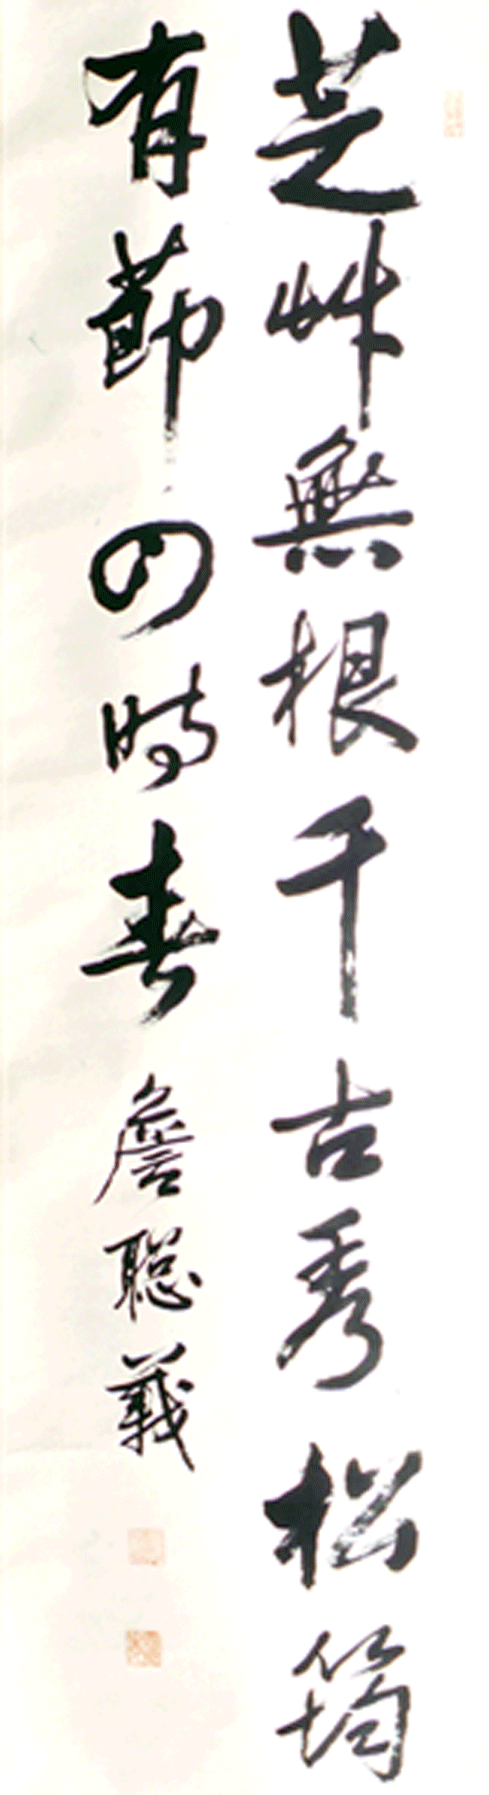 芝艸無根千古秀松筠
有節四時春詹聡義